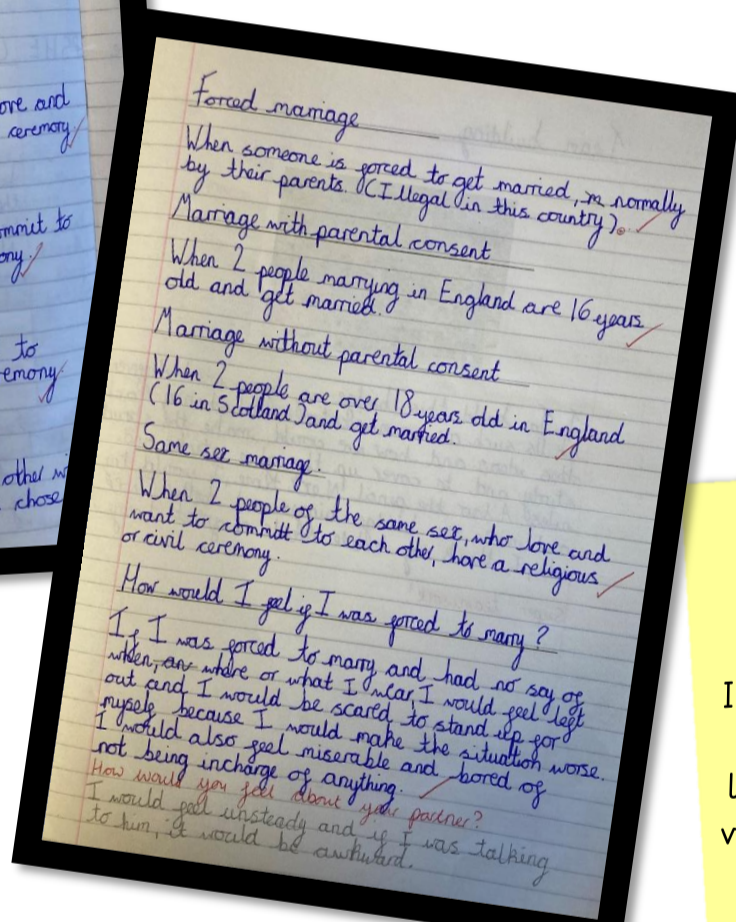 ove and
ceremony
mmit to
ony
to
emony
other wi
chose
Forced marriage
When someone is forced to get married, normally
by their parents. (Illegal in this country).
Marriage with parental consent
When 2 people marrying in England are 16 years
old and get married.
Marriage without parental consent
When 2 people are over 18 years old in England
(16 in Scotland) and get married.
Same sex marriage.
When 2 people of the same sex, who love and
want to committ to each other, have a religious
or civil ceremony.
How would I feel if I was forced to marry?
If I was forced to marry and had no say of
when, where or what I wear, I would feel left
out and I would be scared to stand up for
myself because I would make the situation worse.
I would also feel miserable and bored of
not being incharge of anything.
How would you feel about your partner?
I would feel unsteady and if I was talking
to him, it would be awkward.
I